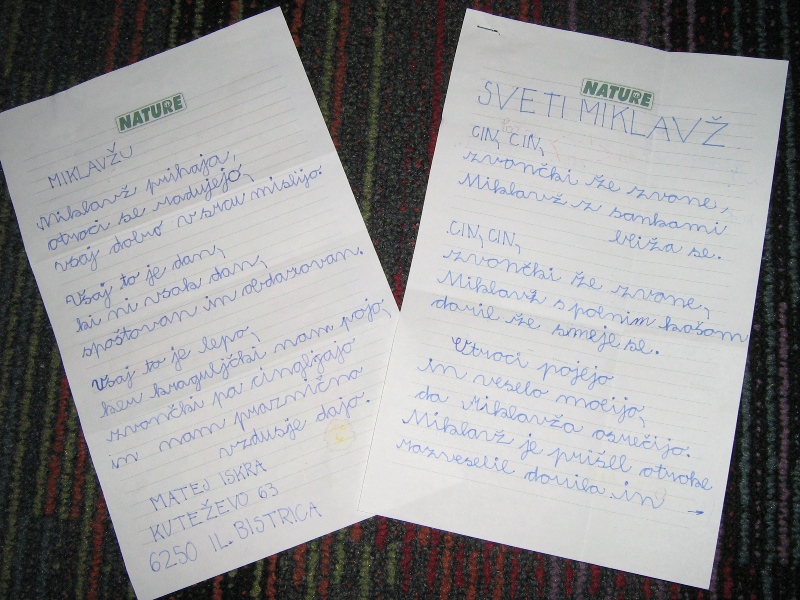 NATURE
MIKLAVŽU
Miklavž prihaja,
otroci se radujejo,
vsaj dobro v srcu mislijo.
Vsaj to je dan,
ki ni vsak dan,
spoštovan in obdarovan.
Vsaj to je lepo,
ker kraguljčki nam pojo,
zvončki pa cingljajo
in nam praznično
vzdušje dajo.
MATEJ ISKRA
KUTEŽEVO 63
6250 IL. BISTRICA
NATURE
SVETI MIKLAVŽ
CIN, CIN,
zvončki že zvone,
Miklavž z sankami
bliža se.
CIN, CIN,
zvončki že zvone,
Miklavž s polnim košom
daril že smeje se.
Otroci pojejo
in veselo molijo,
da Miklavža osrečijo.
Miklavž je prišel otroke
razveselil darila in →